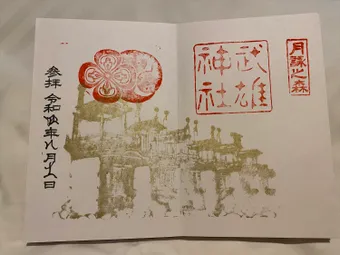 月 之森
武雄
神社
参拝 令和 年八月 日